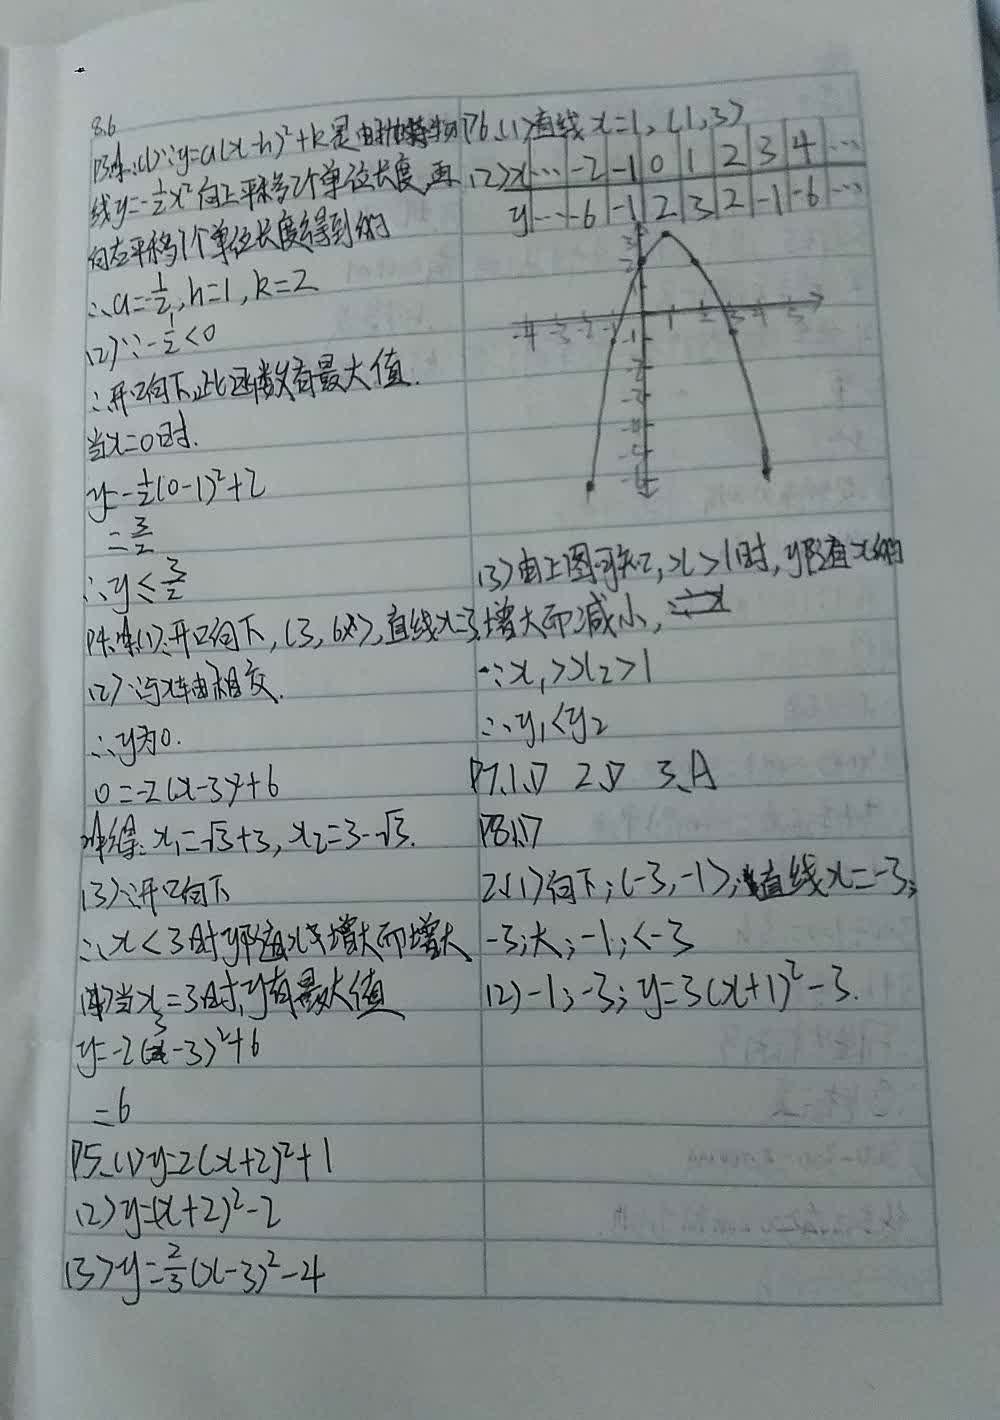 8.6
P3.解:(1)∵y=a(x-h)²+k是由抛物
线y=-1/2x²向上平移2个单位长度,再
向左平移1个单位长度得到的
∴a=-1/2,h=1,k=2
(2)∵-1/2<0
∴开口向下,此函数有最大值.
当x=0时.
y=-1/2(0-1)²+2
=3/2
∴y≤3/2
P4.解(1)∵开口向下,(3,6),直线x=3
(2)∵与x轴相交.
∴y为0.
0=-2(x-3)²+6
解得:x₁=√3+3,x₂=3-√3.
(3)∵开口向下
∴x<3时y随x增大而增大
当x=3时,y有最大值
y=-2(3-3)²+6
=6
P5.(1)y=2(x+2)²+1
(2)y=(x+2)²-2
(3)y=2/3(x-3)²-4
P6.(1)直线x=1,(1,3)
(2)x … -2 -1 0 1 2 3 4 …
y … -6 -1 2 3 2 -1 -6 …
3
2
1
-4 -3 -2 -1 1 2 3 4 5
-1
-2
(3)由上图可知,x>1时,y随着x的
增大而减小,
∵x₁>x₂>1
∴y₁<y₂
P7.1.D 2.D 3.A
P8.1.D
2.(1)向下;(-3,-1);直线x=-3;
-3;大;-1;<-3
(2)-1;-3;y=3(x+1)²-3.